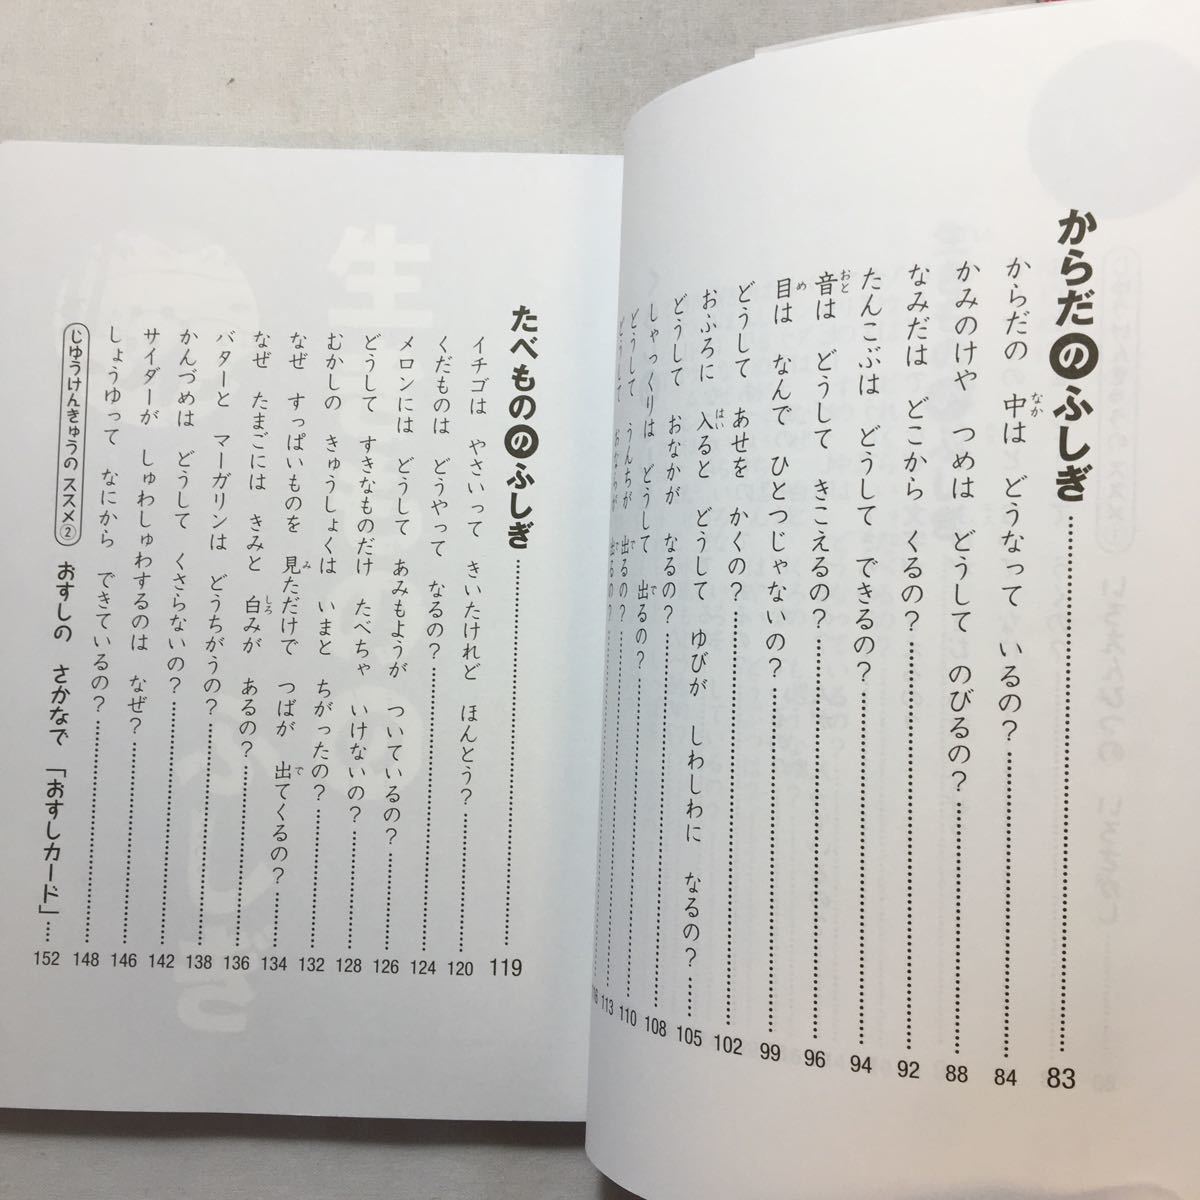 からだのふしぎ……83
からだの 中は どうなって いるの?……84
かみのけや つめは どうして のびるの?……88
なみだは どこから くるの?……92
たんこぶは どうして できるの?……94
音は どうして きこえるの?……96
目は なんで ひとつじゃないの?……99
どうして あせを かくの?……102
おふろに 入ると どうして ゆびが しわしわに なるの?……105
どうして おなかが なるの?……108
しゃっくりは どうして 出るの?……110
どうして うんちが 出るの?……113
どうして おならが 出るの?……116
たべもののふしぎ……119
イチゴは やさいって きいたけれど ほんとう?……120
くだものは どうやって なるの?……124
メロンには どうして あみもようが ついているの?……126
どうして すきなものだけ たべちゃ いけないの?……128
むかしの きゅうしょくは いまと ちがったの?……132
なぜ すっぱいものを 見ただけで つばが 出てくるの?……134
なぜ たまごには きみと 白みが あるの?……136
バターと マーガリンは どうちがうの?……138
かんづめは どうして くさらないの?……142
サイダーが しゅわしゅわするのは なぜ?……146
しょうゆって なにから できているの?……148
じゆうけんきゅうの ススメ② おすしの さかなで 「おすしカード」…152